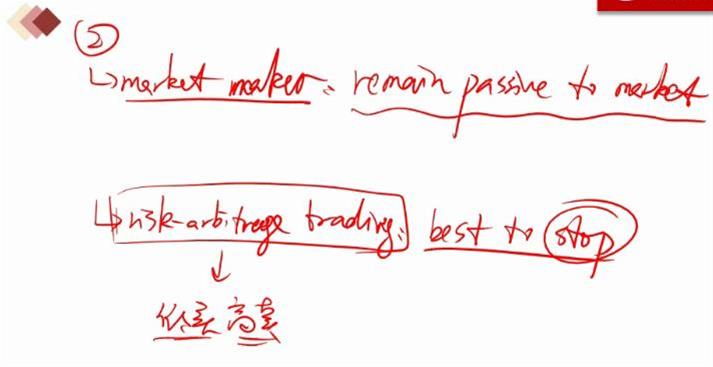 ②
↳ market maker: remain passive to market
↳ risk-arbitrage trading: best to stop
↓
低买 高卖